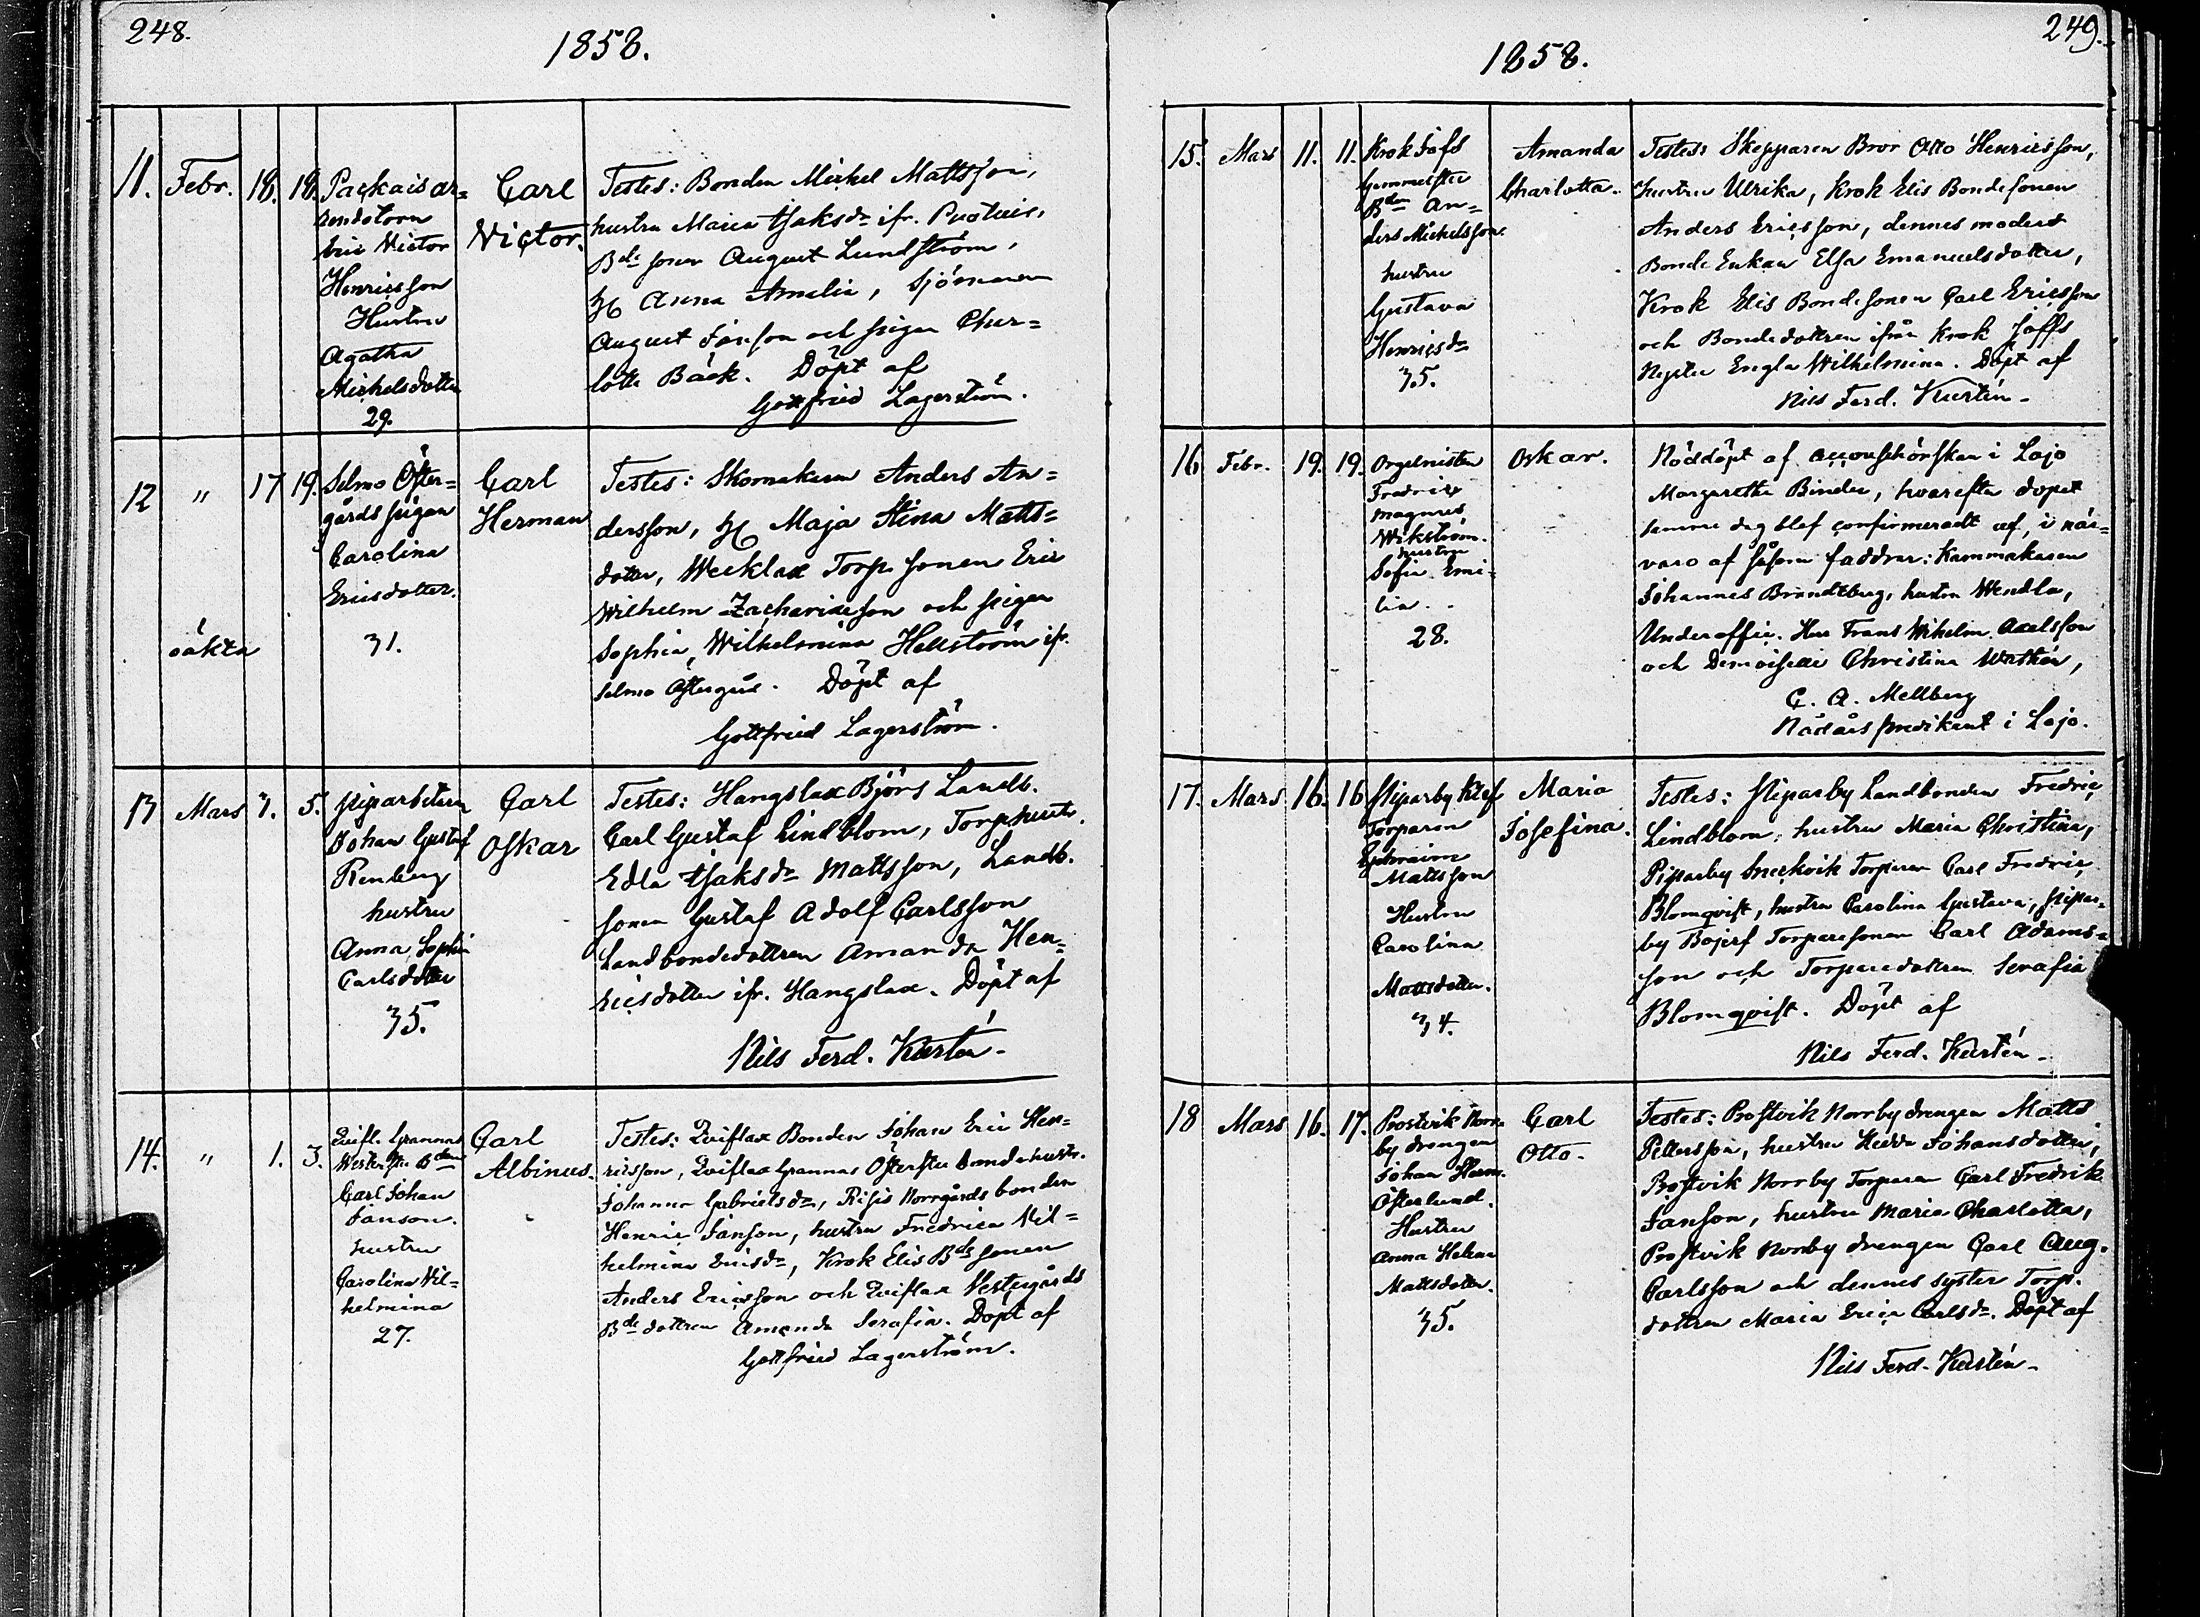 248.
1858.
11. Febr. 18. 18.
Packais ar=
rendatorn
Eric Victor
Henricsson
Hustru
Agatha
Michelsdotter
29.
Carl
Victor.
Testes: Bonden Michel Mattsson,
hustru Maria Isaksdr ifr.
Bde sonen August Lundström,
H Anna Amalia, Sjömannen
August Janson och pigan Char=
lotta Bäck. Döpt af
Gottfried Lagerström.
12 " 17 19.
oäkta
Selmo Öster=
gårds pigan
Carolina
Ericsdotter.
31.
Carl
Herman
Testes: Skomakaren Anders An=
dersson, H Maja Stina Matts=
dotter, Wecklax Torp. sonen Eric
Wilhelm Zachariasson och pigan
Sophia Wilhelmina Hellström ifr.
Selmo Östergård. Döpt af
Gottfried Lagerström.
13 Mars 3. 5.
Johan Gustaf
Renberg
hustru
Anna Sophia
Carlsdotter
35.
Carl
Oskar
Testes: Hangslax Björs Landb.
Carl Gustaf Lindblom, Torphustr.
Edla Isaksdr Mattsson, Landb.
sonen Gustaf Adolf Carlsson
Landbondedottren Amanda Hen=
ricsdotter ifr. Hangslax. Döpt af
Nils Ferd. Kustén.
14. " 1. 3.
Qvifl. Grannas
Bden
Carl Johan
Janson.
hustru
Carolina Vil=
helmina
27.
Carl
Albinus.
Testes: Qviflax Bonden Johan Eric Hen=
ricsson, Qviflax Grannas Bondehustr.
Johanna Gabrielsdr, Risis Norrgårds bonden
Henric Janson, hustru Fredrica Vil=
helmina Ericsdr, Krok Elis Bdesonen
Anders Ericsson och Qviflax Vestergårds
Bde dottren Amanda Serafia. Döpt af
Gottfried Lagerström.
249.
1858.
15. Mars 11. 11.
Krok Jofs
Bden An=
ders Michelsson
hustru
Gustava
Henricsdr
35.
Amanda
Charlotta.
Testes: Skepparen Bror Otto Henricsson,
hustru Ulrika, Krok Elis Bondesonen
Anders Ericsson, dennes moder
Bonde Enkan Elsa Emanuelsdotter,
Krok Elis Bondesonen Carl Ericsson
och Bondedottren ifrån Krok Joffs
Engla Wilhelmina. Döpt af
Nils Ferd. Kustén.
16 Febr. 19. 19.
Orgelnisten
Fredric
Magnus
Wikström.
hustru
Sofia Emi=
lia.
28.
Oskar.
Nöddöpt af accoucherskan i Lojo
Margaretha Binder, hvarefter dopet
samma dag blef confirmeradt af, i när=
varo af såsom faddrar: Kammakaren
Johannes Brandtberg, hustru Wendla,
Underoffic. Herr Frans Wilhelm Axelsson
och Demoiselle Christina
C. A. Mellberg
Nådårspredikant i Lojo.
17. Mars 16. 16
Piparby Klef
Torparen
Ephraim
Mattsson
Hustru
Carolina
Mattsdotter.
34.
Maria
Josefina.
Testes: Piparby Landbonden Fredric
Lindblom, hustru Maria Christina,
Piparby Sneckvik Torparen Carl Fredric
Blomqvist, hustru Carolina Gustava, Pipar=
by Torparesonen Carl Adams=
son och Torparedottren Serafia
Blomqvist. Döpt af
Nils Ferd. Kustén.
18 Mars 16. 17.
Prostvik Norr=
by drengen
Johan Herm.
Österlund.
Hustru
Anna Helena
Mattsdotter.
35.
Carl
Otto.
Testes: Prostvik Norrby drengen Matts
Pettersson, hustru Hedda Johansdotter,
Prostvik Norrby Torparen Carl Fredrik
Janson, hustru Maria Charlotta,
Prostvik Norrby drengen Carl Aug.
Carlsson och dennes syster Torp.
dottren Maria Erica Carlsdr. Döpt af
Nils Ferd. Kustén.